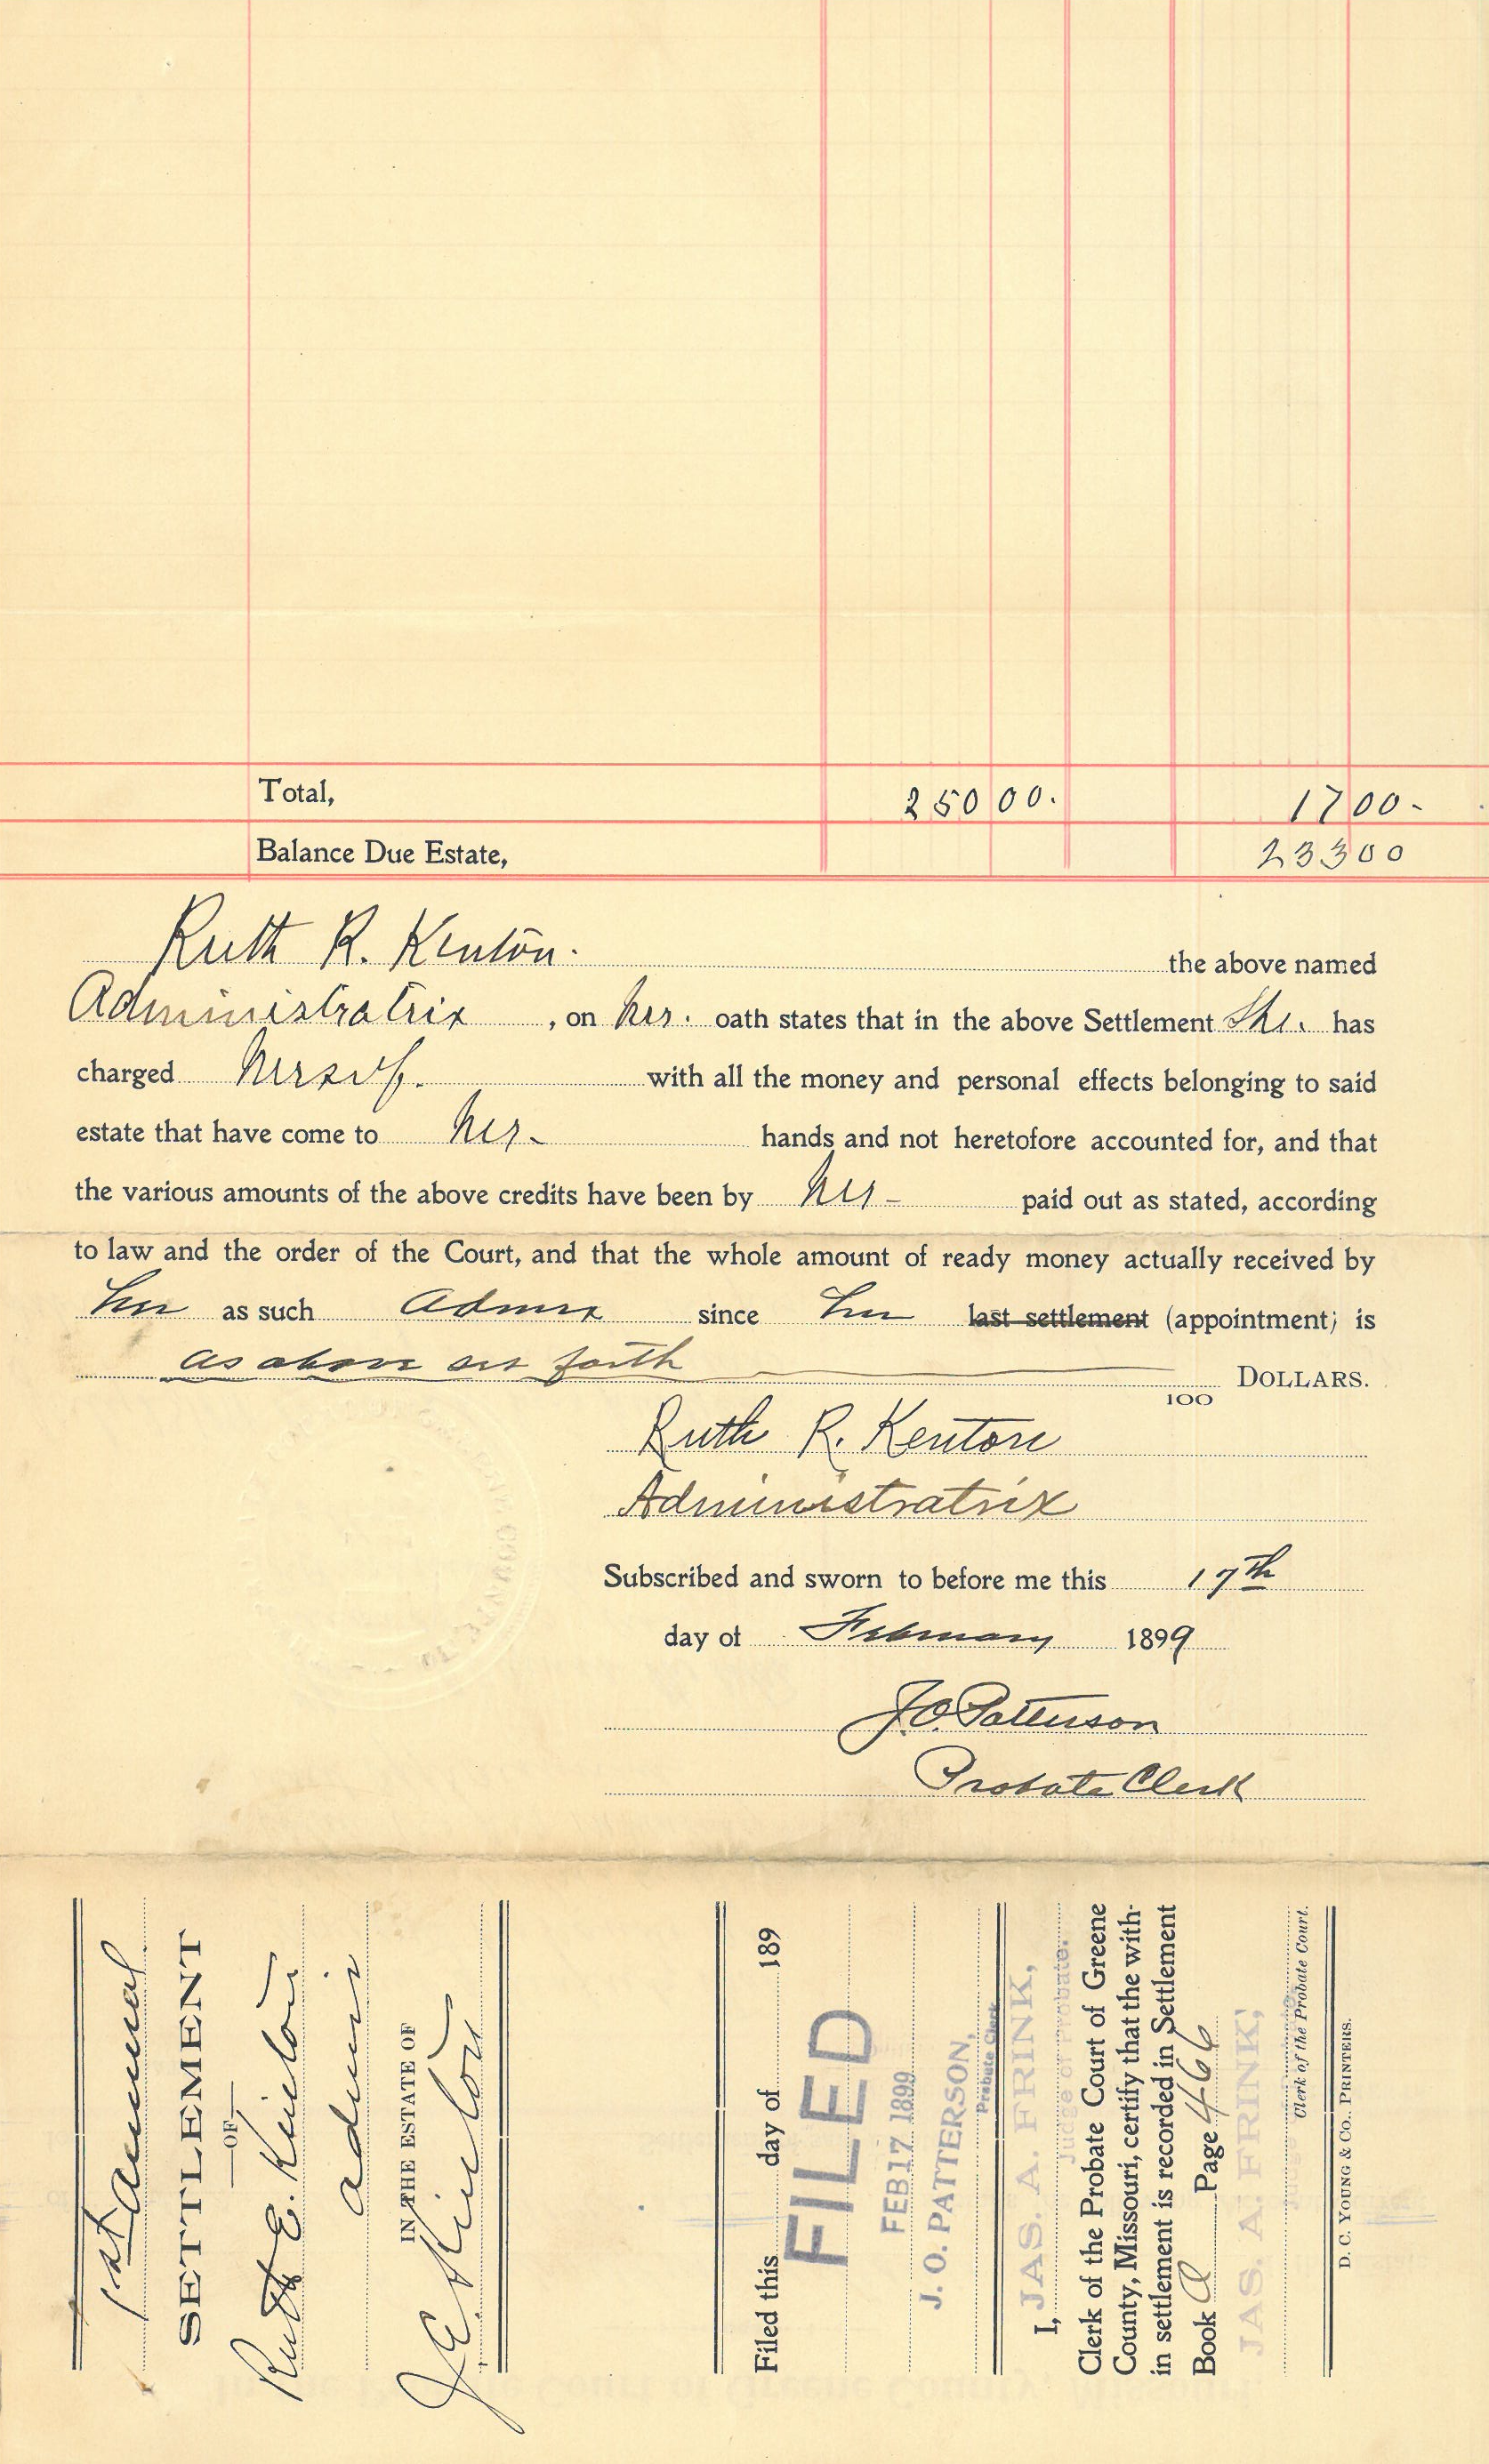 Total, 250 00. 17 00-
Balance Due Estate, 233 00
Ruth R. Kenton. the above named
Administratrix, on her. oath states that in the above Settlement She. has
charged herself. with all the money and personal effects belonging to said
estate that have come to her- hands and not heretofore accounted for, and that
the various amounts of the above credits have been by her- paid out as stated, according
to law and the order of the Court, and that the whole amount of ready money actually received by
her as such Admrx since her last settlement (appointment) is
as above set forth
100 DOLLARS.
Ruth R. Kenton
Administratrix
Subscribed and sworn to before me this 17th
day of February 1899
J.O. Patterson
Probate Clerk
1st Annual
SETTLEMENT
—OF—
Ruth E. Kenton
admix
IN THE ESTATE OF
J.E. Kenton
Filed this day of 189
FILED
FEB 17 1899
J. O. PATTERSON,
Probate Clerk
I, JAS. A. FRINK,
Judge of Probate.
Clerk of the Probate Court of Greene
County, Missouri, certify that the with-
in settlement is recorded in Settlement
Book Q Page 466
JAS. A. FRINK,
Clerk of the Probate Court.
D. C. YOUNG & CO., PRINTERS.